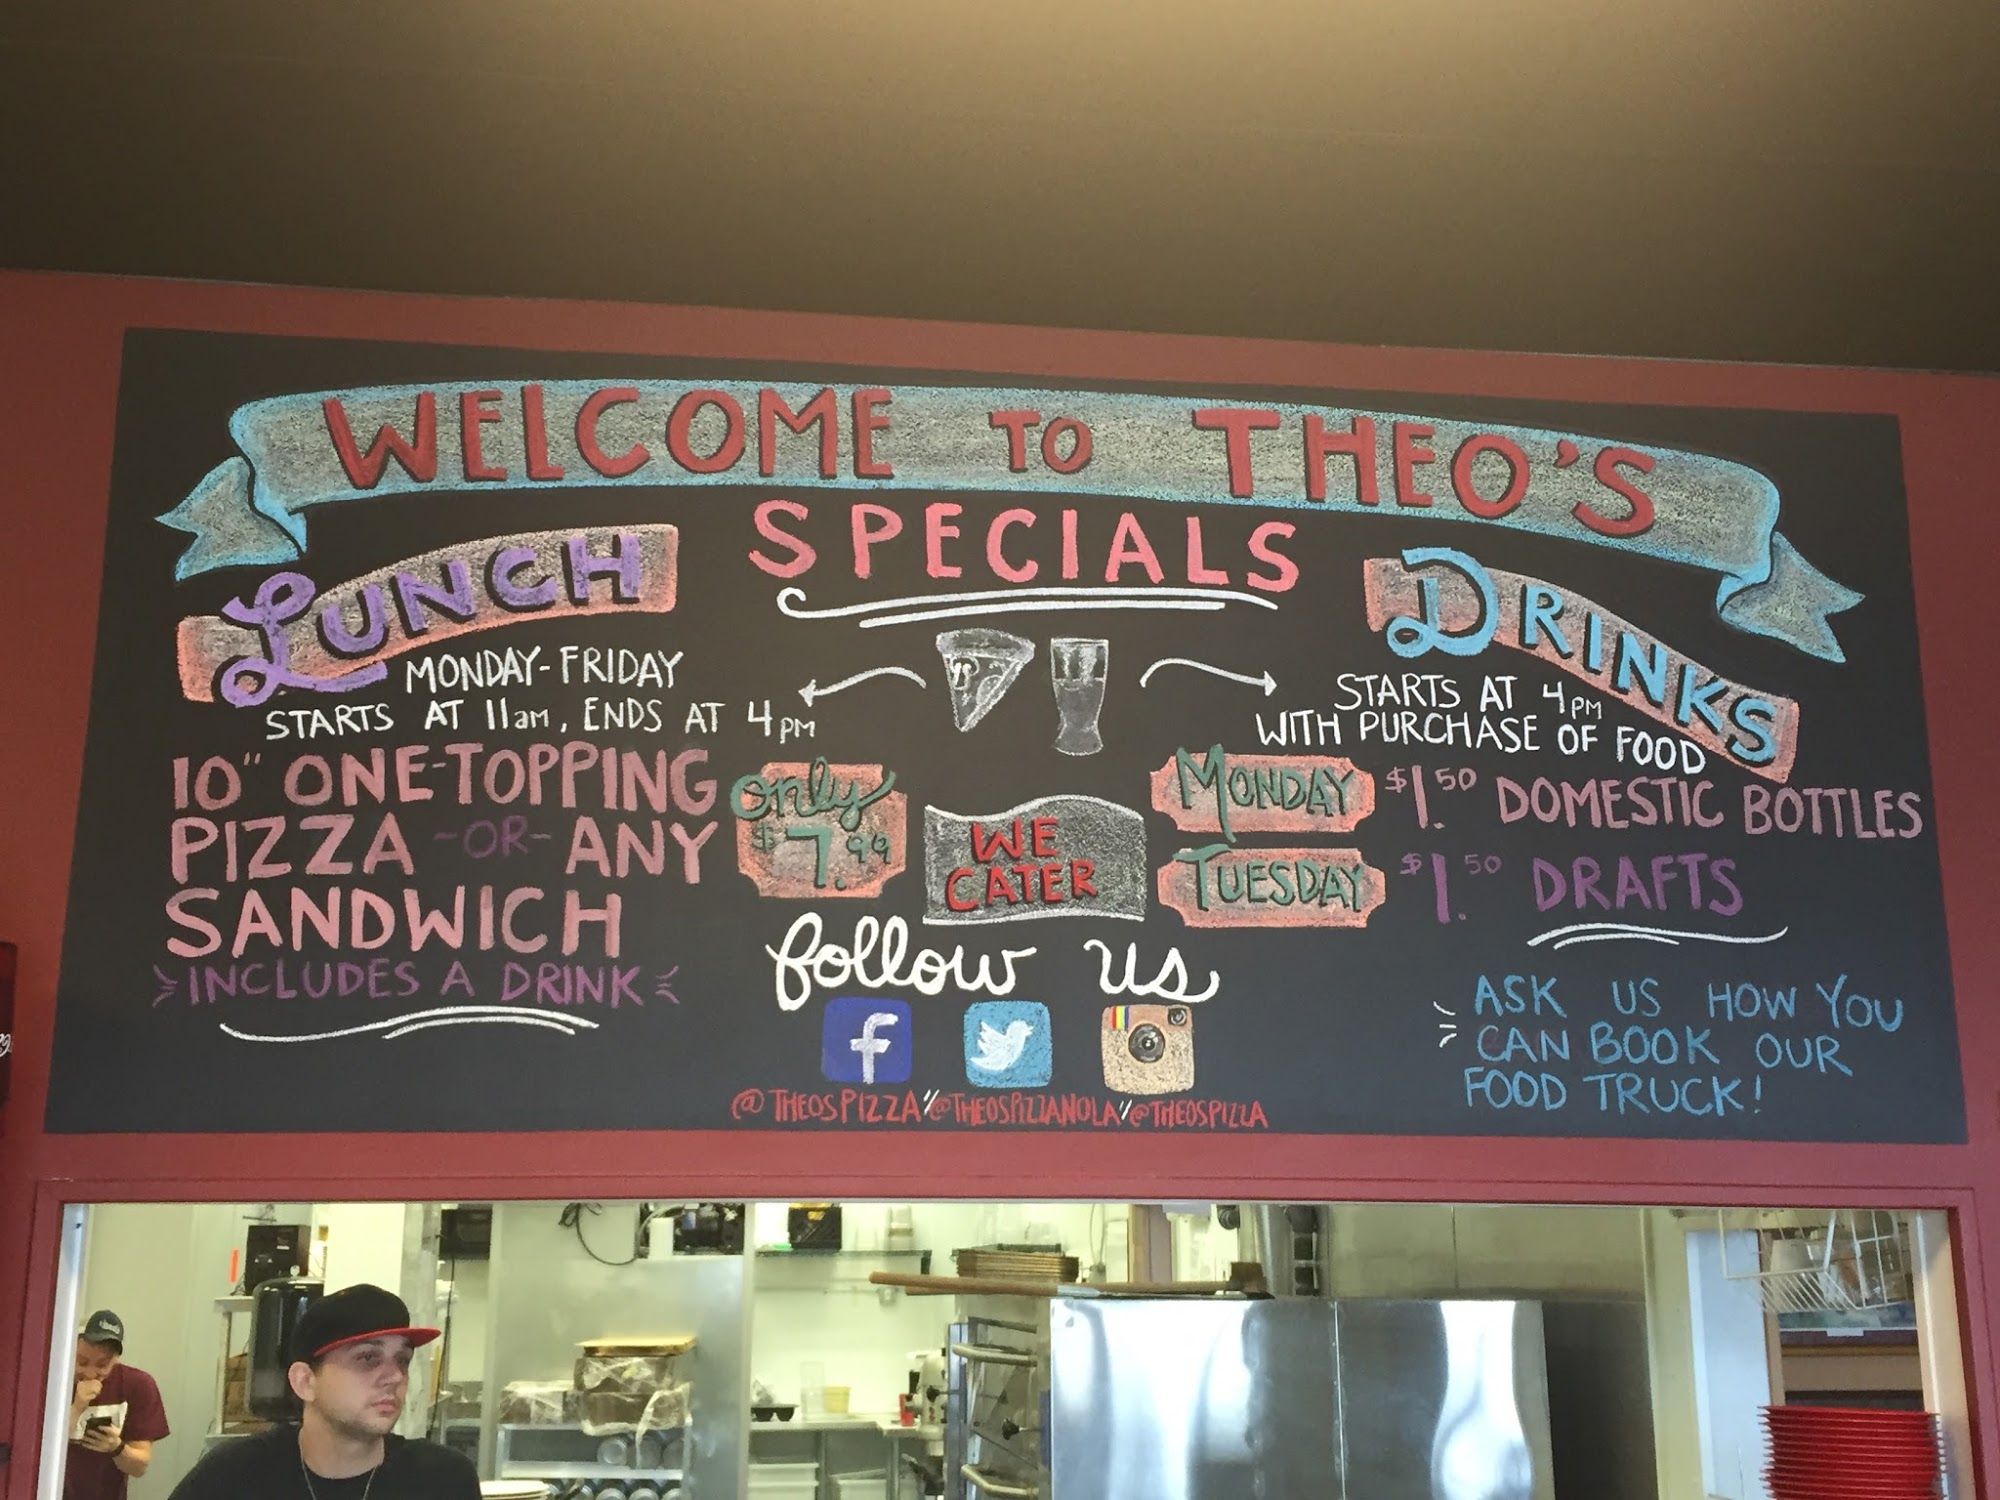 WELCOME TO THEO'S
SPECIALS
LUNCH
MONDAY-FRIDAY
STARTS AT 11am, ENDS AT 4PM
10" ONE-TOPPING
PIZZA -OR- ANY
SANDWICH
INCLUDES A DRINK
only
$7.99
WE
CATER
DRINKS
STARTS AT 4PM
WITH PURCHASE OF FOOD
MONDAY $1.50 DOMESTIC BOTTLES
TUESDAY $1.50 DRAFTS
follow us
f
@THEOSPIZZA // @THEOSPIZZANOLA // @THEOSPIZZA
ASK US HOW YOU
CAN BOOK OUR
FOOD TRUCK!